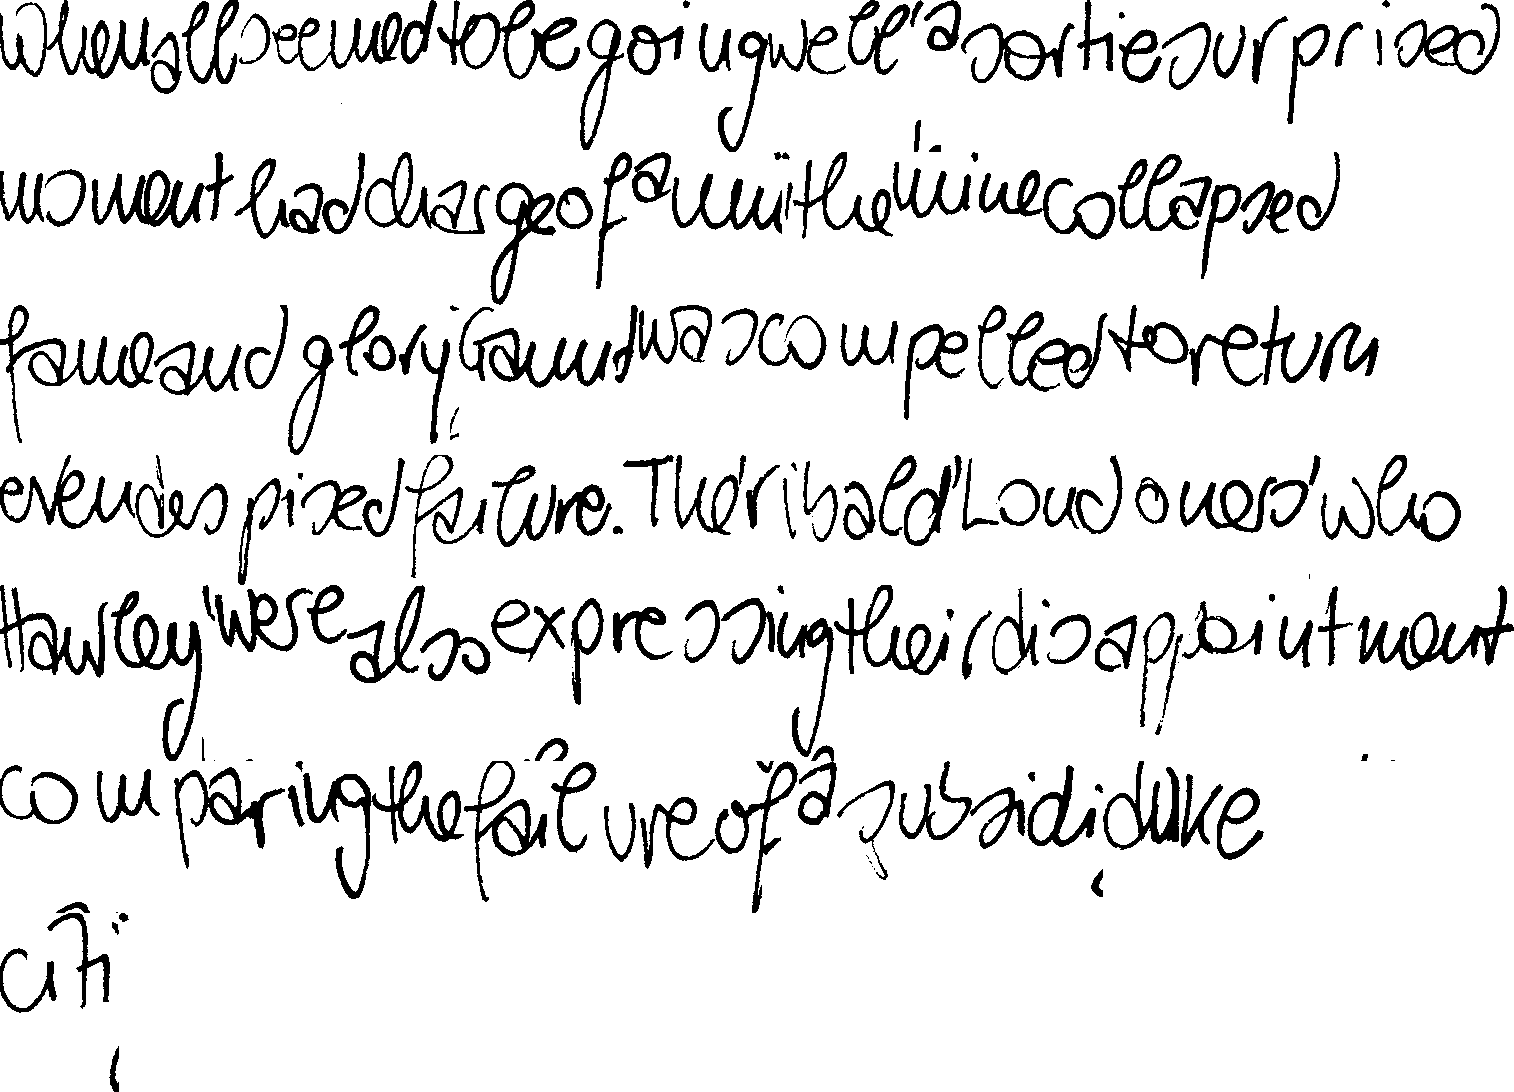 when all seemed to be going well, a sortie surprised
moment had charge of a unit the mine collapsed
fame and glory, Gaunt was compelled to return
even despised failure. The ribald Londoners, who
Hawley, were also expressing their disappointment
comparing the failure of a subsidi like
citi